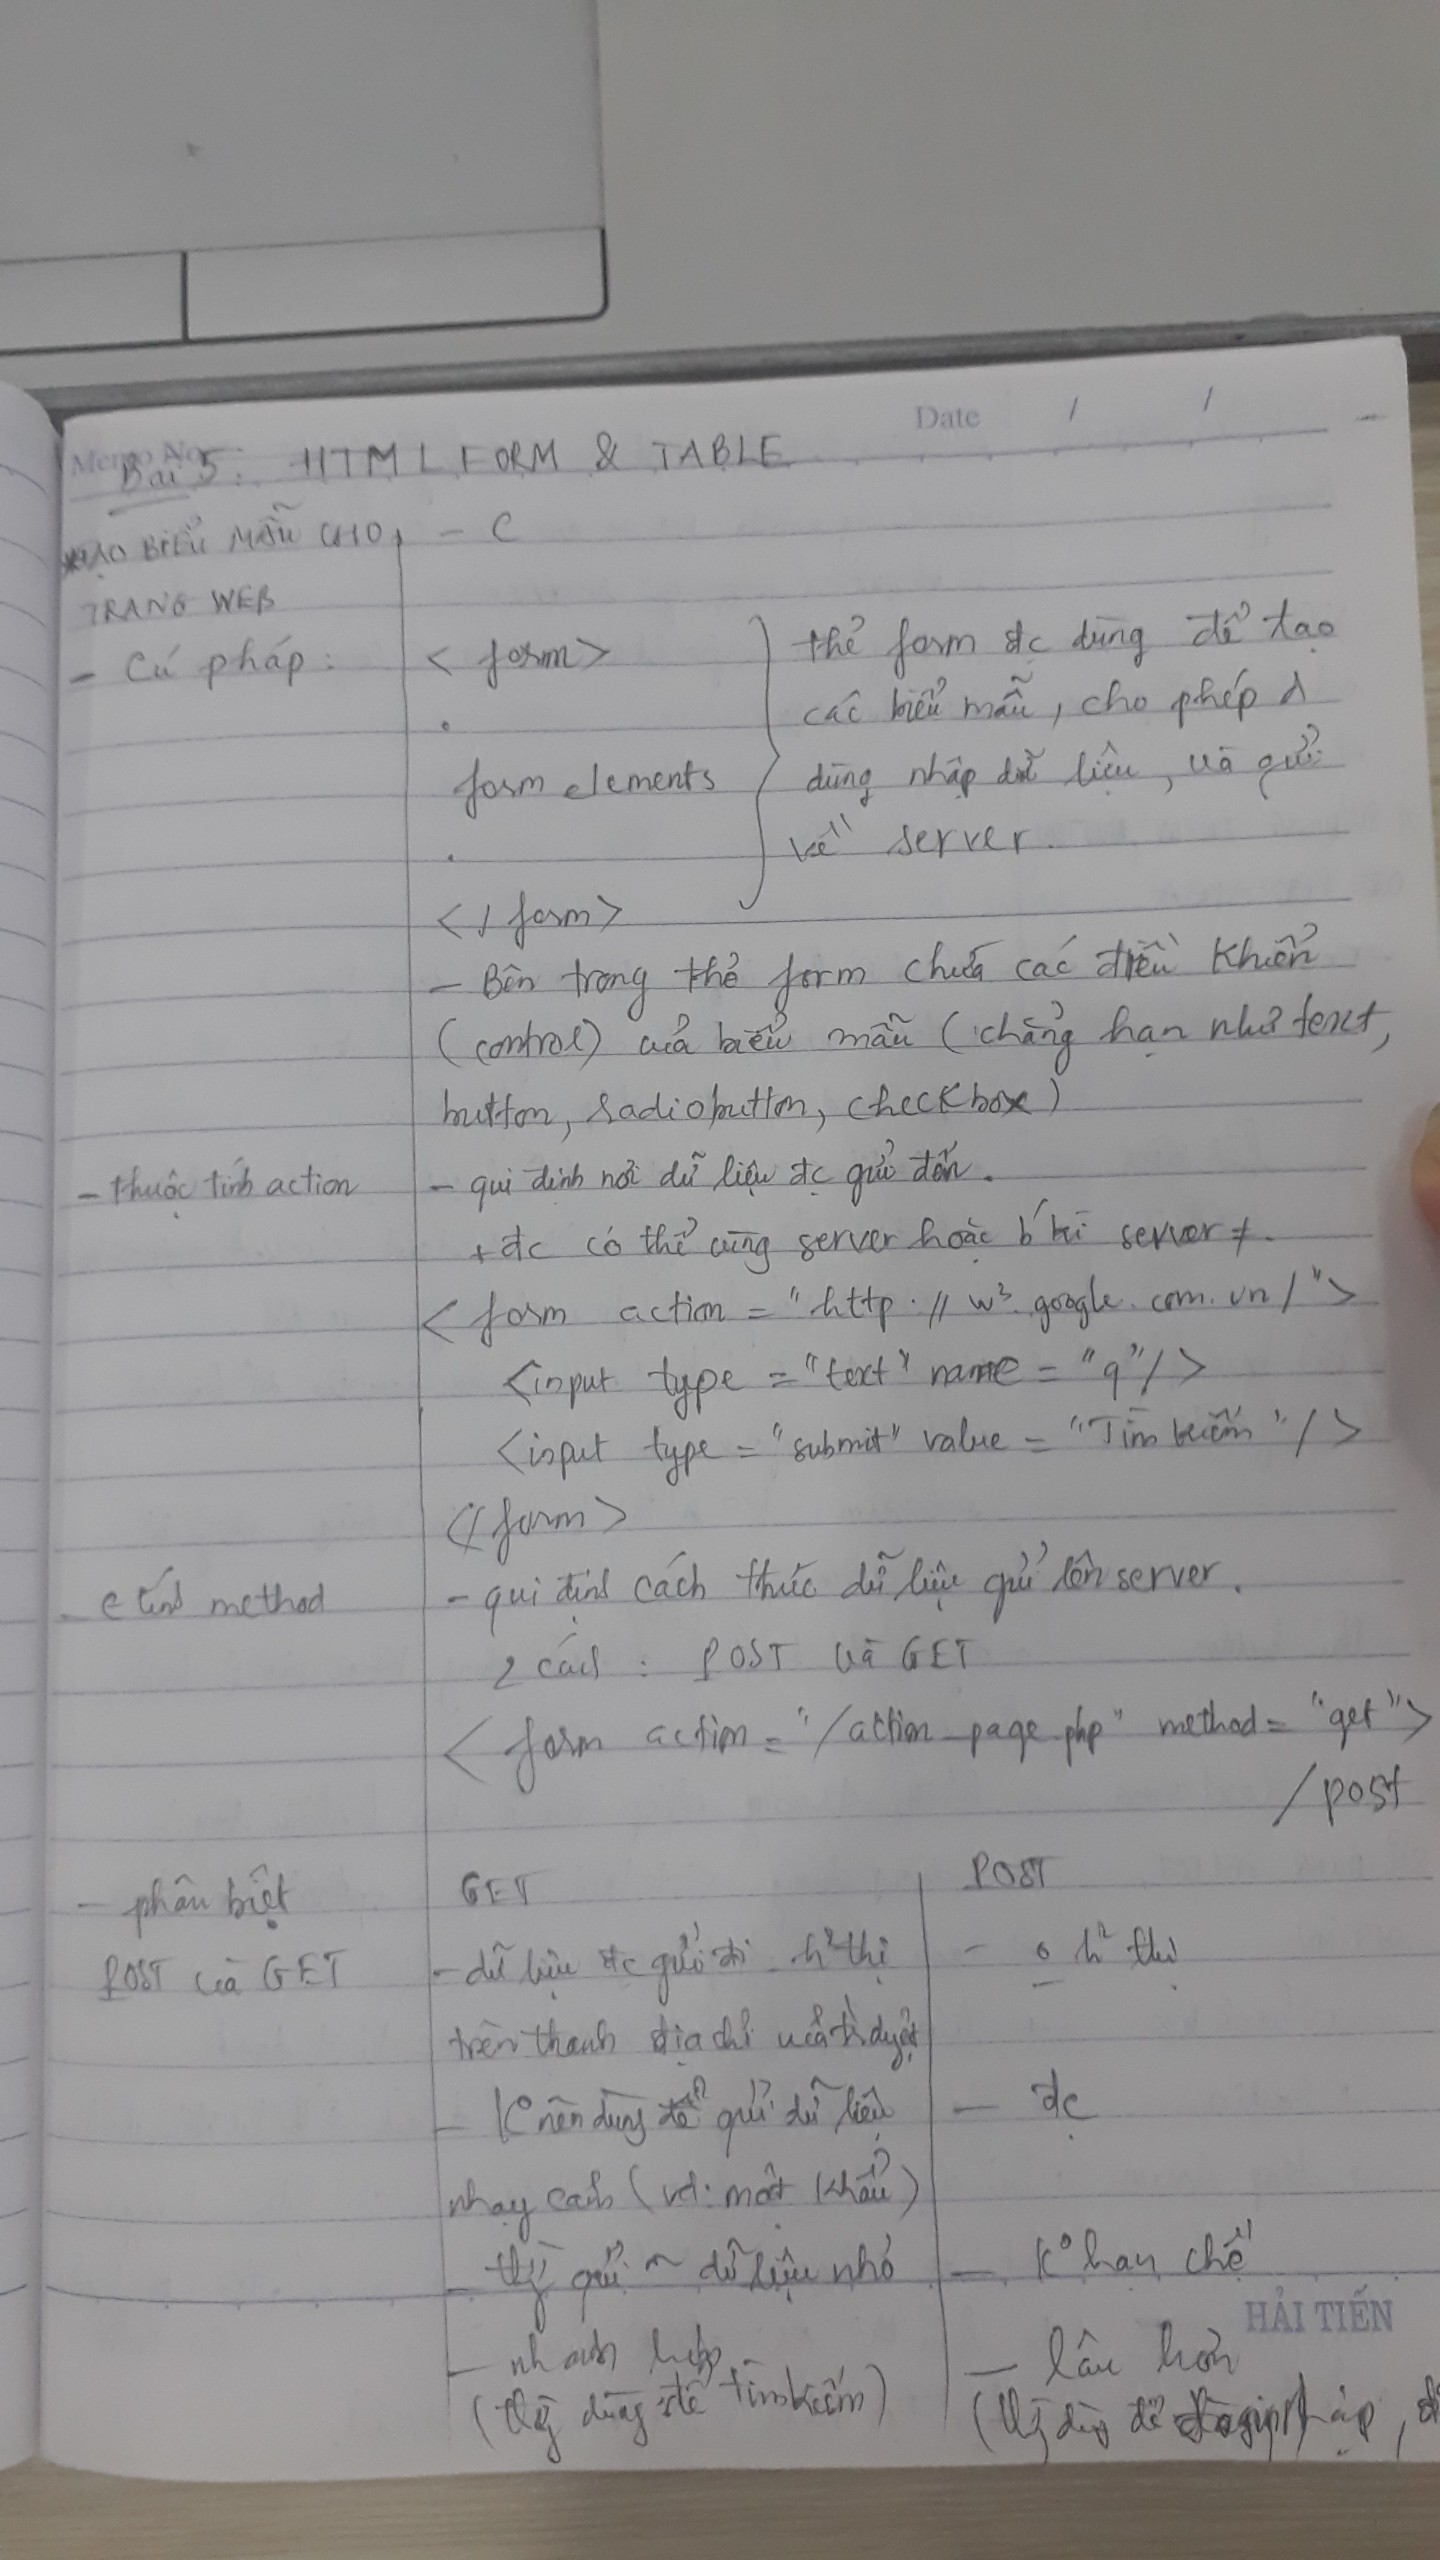 Memo No.
Date / /
Bài 5: HTML FORM & TABLE
* TẠO BIỂU MẪU CHO - C
TRANG WEB
- Cú pháp: <form>
.
form elements
.
</form>
thẻ form đc dùng để tạo
các biểu mẫu, cho phép
dùng nhập dữ liệu, và gửi
về server.
- Bên trong thẻ form chứa các điều khiển
(control) của biểu mẫu (chẳng hạn như text,
button, radiobutton, checkbox)
- thuộc tính action - qui định nơi dữ liệu đc gửi đến.
+ đc có thể cùng server hoặc b' kì server ≠.
<form action = "http://w³.google.com.vn/">
<input type = "text" name = "q"/>
<input type = "submit" value = "Tìm kiếm"/>
</form>
- tính method - qui định cách thức dữ liệu gửi lên server.
2 cách : POST và GET
<form action = "/action_page.php" method = "get">
/post
- phân biệt GET POST
POST và GET - dữ liệu đc gửi đi h² thị - h² thị
trên thanh địa chỉ của t² duyệt
- K° nên dùng để gửi dữ liệu - đc
nhạy cảm (vd: mật khẩu)
- gửi ~ dữ liệu nhỏ - K° hạn chế
HẢI TIẾN
- nhanh hơn - lâu hơn
(dùng để tìm kiếm) (dùng để